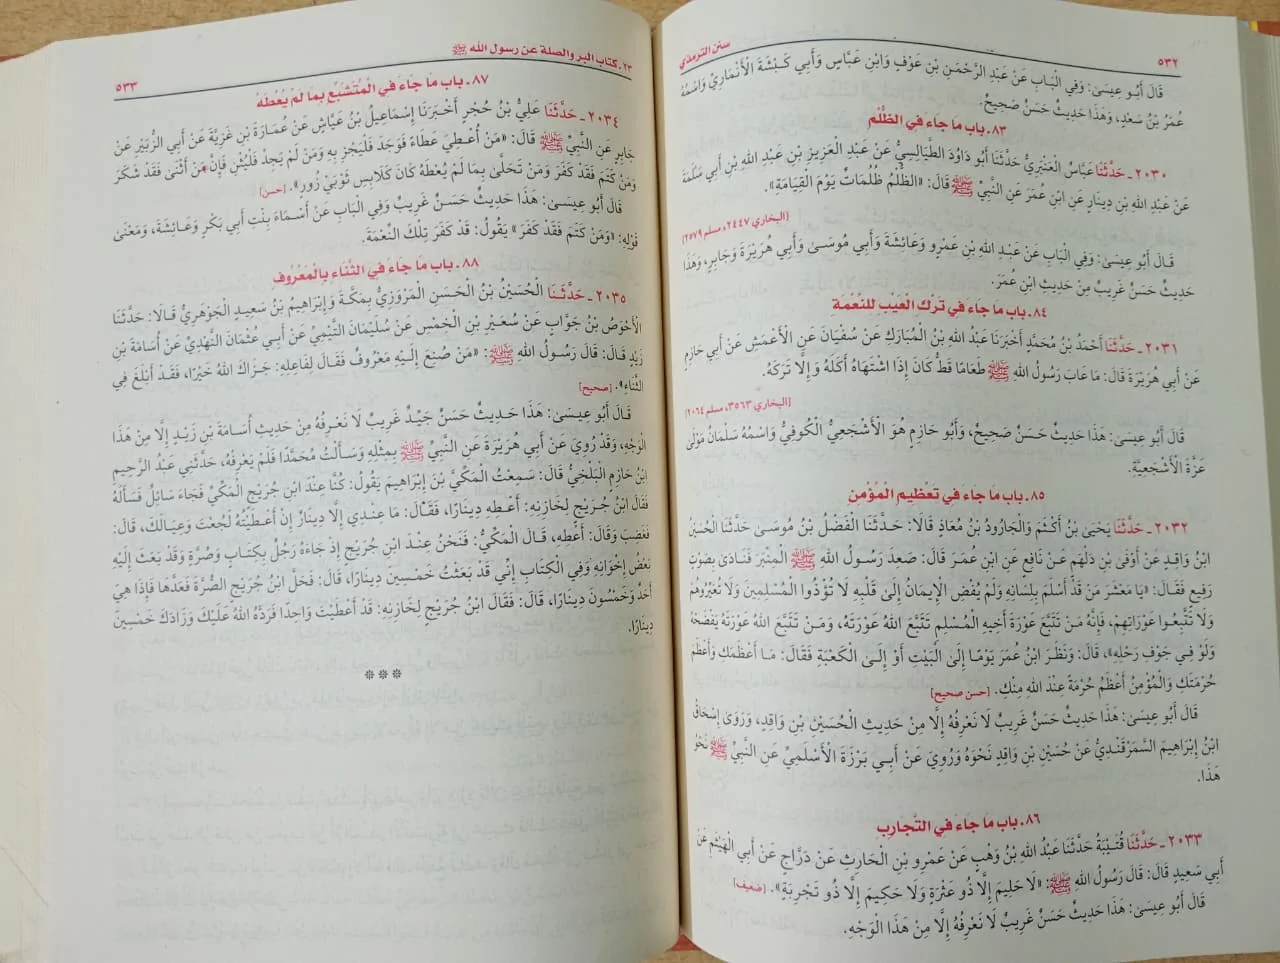 ٥٣٢
سنن الترمذي
قَالَ أَبُو عِيسَىٰ: وَفِي الْبَابِ عَنْ عَبْدِ الرَّحْمٰنِ بْنِ عَوْفٍ وَابْنِ عَبَّاسٍ وَأَبِي كَبْشَةَ الْأَنْمَارِيِّ وَاسْمُهُ
عُمَرُ بْنُ سَعْدٍ، وَهٰذَا حَدِيثٌ حَسَنٌ صَحِيحٌ.
٨٣ـ باب مَا جَاءَ فِي الظُّلْمِ
٢٠٣٠ ـ حَدَّثَنَا عَبَّاسٌ الْعَنْبَرِيُّ حَدَّثَنَا أَبُو دَاوُدَ الطَّيَالِسِيُّ عَنْ عَبْدِ الْعَزِيزِ بْنِ عَبْدِ اللهِ بْنِ أَبِي سَلَمَةَ
عَنْ عَبْدِ اللهِ بْنِ دِينَارٍ عَنِ ابْنِ عُمَرَ عَنِ النَّبِيِّ ﷺ قَالَ: «الظُّلْمُ ظُلُمَاتٌ يَوْمَ الْقِيَامَةِ».
[البخاري ٢٤٤٧، مسلم ٢٥٧٩]
قَالَ أَبُو عِيسَىٰ: وَفِي الْبَابِ عَنْ عَبْدِ اللهِ بْنِ عَمْرٍو وَعَائِشَةَ وَأَبِي مُوسَىٰ وَأَبِي هُرَيْرَةَ وَجَابِرٍ، وَهٰذَا
حَدِيثٌ حَسَنٌ غَرِيبٌ مِنْ حَدِيثِ ابْنِ عُمَرَ.
٨٤ـ باب مَا جَاءَ فِي تَرْكِ الْعَيْبِ لِلنِّعْمَةِ
٢٠٣١ ـ حَدَّثَنَا أَحْمَدُ بْنُ مُحَمَّدٍ أَخْبَرَنَا عَبْدُ اللهِ بْنُ الْمُبَارَكِ عَنْ سُفْيَانَ عَنِ الْأَعْمَشِ عَنْ أَبِي حَازِمٍ
عَنْ أَبِي هُرَيْرَةَ قَالَ: مَا عَابَ رَسُولُ اللهِ ﷺ طَعَامًا قَطُّ كَانَ إِذَا اشْتَهَاهُ أَكَلَهُ وَإِلَّا تَرَكَهُ.
[البخاري ٣٥٦٣، مسلم ٢٠٦٤]
قَالَ أَبُو عِيسَىٰ: هٰذَا حَدِيثٌ حَسَنٌ صَحِيحٌ، وَأَبُو حَازِمٍ هُوَ الْأَشْجَعِيُّ الْكُوفِيُّ وَاسْمُهُ سَلْمَانُ مَوْلَى
عَزَّةَ الْأَشْجَعِيَّةِ.
٨٥ـ باب مَا جَاءَ فِي تَعْظِيمِ الْمُؤْمِنِ
٢٠٣٢ ـ حَدَّثَنَا يَحْيَىٰ بْنُ أَكْثَمَ وَالْجَارُودُ بْنُ مُعَاذٍ قَالَا: حَدَّثَنَا الْفَضْلُ بْنُ مُوسَىٰ حَدَّثَنَا الْحُسَيْنُ
ابْنُ وَاقِدٍ عَنْ أَوْفَىٰ بْنِ دَلْهَمٍ عَنْ نَافِعٍ عَنِ ابْنِ عُمَرَ قَالَ: صَعِدَ رَسُولُ اللهِ ﷺ الْمِنْبَرَ فَنَادَىٰ بِصَوْتٍ
رَفِيعٍ فَقَالَ: «يَا مَعْشَرَ مَنْ قَدْ أَسْلَمَ بِلِسَانِهِ وَلَمْ يُفْضِ الْإِيمَانُ إِلَىٰ قَلْبِهِ لَا تُؤْذُوا الْمُسْلِمِينَ وَلَا تُعَيِّرُوهُمْ
وَلَا تَتَّبِعُوا عَوْرَاتِهِمْ، فَإِنَّهُ مَنْ تَتَبَّعَ عَوْرَةَ أَخِيهِ الْمُسْلِمِ تَتَبَّعَ اللهُ عَوْرَتَهُ، وَمَنْ تَتَبَّعَ اللهُ عَوْرَتَهُ يَفْضَحْهُ
وَلَوْ فِي جَوْفِ رَحْلِهِ»، قَالَ: وَنَظَرَ ابْنُ عُمَرَ يَوْمًا إِلَى الْبَيْتِ أَوْ إِلَى الْكَعْبَةِ فَقَالَ: مَا أَعْظَمَكِ وَأَعْظَمَ
حُرْمَتَكِ وَالْمُؤْمِنُ أَعْظَمُ حُرْمَةً عِنْدَ اللهِ مِنْكِ. [حسن صحيح]
قَالَ أَبُو عِيسَىٰ: هٰذَا حَدِيثٌ حَسَنٌ غَرِيبٌ لَا نَعْرِفُهُ إِلَّا مِنْ حَدِيثِ الْحُسَيْنِ بْنِ وَاقِدٍ، وَرَوَىٰ إِسْحَاقُ
ابْنُ إِبْرَاهِيمَ السَّمَرْقَنْدِيُّ عَنْ حُسَيْنِ بْنِ وَاقِدٍ نَحْوَهُ وَرُوِيَ عَنْ أَبِي بَرْزَةَ الْأَسْلَمِيِّ عَنِ النَّبِيِّ ﷺ نَحْوُ
هٰذَا.
٨٦ـ باب مَا جَاءَ فِي التَّجَارِبِ
٢٠٣٣ ـ حَدَّثَنَا قُتَيْبَةُ حَدَّثَنَا عَبْدُ اللهِ بْنُ وَهْبٍ عَنْ عَمْرِو بْنِ الْحَارِثِ عَنْ دَرَّاجٍ عَنْ أَبِي الْهَيْثَمِ عَنْ
أَبِي سَعِيدٍ قَالَ: قَالَ رَسُولُ اللهِ ﷺ: «لَا حَلِيمَ إِلَّا ذُو عَثْرَةٍ وَلَا حَكِيمَ إِلَّا ذُو تَجْرِبَةٍ». [ضعيف]
قَالَ أَبُو عِيسَىٰ: هٰذَا حَدِيثٌ حَسَنٌ غَرِيبٌ لَا نَعْرِفُهُ إِلَّا مِنْ هٰذَا الْوَجْهِ.
٢٣ـ كتاب البر والصلة عن رسول الله ﷺ
٥٣٣
٨٧ـ باب مَا جَاءَ فِي الْمُتَشَبِّعِ بِمَا لَمْ يُعْطَهُ
٢٠٣٤ ـ حَدَّثَنَا عَلِيُّ بْنُ حُجْرٍ أَخْبَرَنَا إِسْمَاعِيلُ بْنُ عَيَّاشٍ عَنْ عُمَارَةَ بْنِ غَزِيَّةَ عَنْ أَبِي الزُّبَيْرِ عَنْ
جَابِرٍ عَنِ النَّبِيِّ ﷺ قَالَ: «مَنْ أُعْطِيَ عَطَاءً فَوَجَدَ فَلْيَجْزِ بِهِ وَمَنْ لَمْ يَجِدْ فَلْيُثْنِ فَإِنَّ مَنْ أَثْنَىٰ فَقَدْ شَكَرَ
وَمَنْ كَتَمَ فَقَدْ كَفَرَ وَمَنْ تَحَلَّىٰ بِمَا لَمْ يُعْطَهُ كَانَ كَلَابِسِ ثَوْبَيْ زُورٍ». [حسن]
قَالَ أَبُو عِيسَىٰ: هٰذَا حَدِيثٌ حَسَنٌ غَرِيبٌ وَفِي الْبَابِ عَنْ أَسْمَاءَ بِنْتِ أَبِي بَكْرٍ وَعَائِشَةَ، وَمَعْنَىٰ
قَوْلِهِ: «وَمَنْ كَتَمَ فَقَدْ كَفَرَ» يَقُولُ: قَدْ كَفَرَ تِلْكَ النِّعْمَةَ.
٨٨ـ باب مَا جَاءَ فِي الثَّنَاءِ بِالْمَعْرُوفِ
٢٠٣٥ ـ حَدَّثَنَا الْحُسَيْنُ بْنُ الْحَسَنِ الْمَرْوَزِيُّ بِمَكَّةَ وَإِبْرَاهِيمُ بْنُ سَعِيدٍ الْجَوْهَرِيُّ قَالَا: حَدَّثَنَا
الْأَحْوَصُ بْنُ جَوَّابٍ عَنْ سُعَيْرِ بْنِ الْخِمْسِ عَنْ سُلَيْمَانَ التَّيْمِيِّ عَنْ أَبِي عُثْمَانَ النَّهْدِيِّ عَنْ أُسَامَةَ بْنِ
زَيْدٍ قَالَ: قَالَ رَسُولُ اللهِ ﷺ: «مَنْ صُنِعَ إِلَيْهِ مَعْرُوفٌ فَقَالَ لِفَاعِلِهِ: جَزَاكَ اللهُ خَيْرًا، فَقَدْ أَبْلَغَ فِي
الثَّنَاءِ». [صحيح]
قَالَ أَبُو عِيسَىٰ: هٰذَا حَدِيثٌ حَسَنٌ جَيِّدٌ غَرِيبٌ لَا نَعْرِفُهُ مِنْ حَدِيثِ أُسَامَةَ بْنِ زَيْدٍ إِلَّا مِنْ هٰذَا
الْوَجْهِ، وَقَدْ رُوِيَ عَنْ أَبِي هُرَيْرَةَ عَنِ النَّبِيِّ ﷺ بِمِثْلِهِ وَسَأَلْتُ مُحَمَّدًا فَلَمْ يَعْرِفْهُ، حَدَّثَنِي عَبْدُ الرَّحِيمِ
ابْنُ حَازِمٍ الْبَلْخِيُّ قَالَ: سَمِعْتُ الْمَكِّيَّ بْنَ إِبْرَاهِيمَ يَقُولُ: كُنَّا عِنْدَ ابْنِ جُرَيْجٍ الْمَكِّيِّ فَجَاءَ سَائِلٌ فَسَأَلَهُ
فَقَالَ ابْنُ جُرَيْجٍ لِخَازِنِهِ: أَعْطِهِ دِينَارًا، فَقَالَ: مَا عِنْدِي إِلَّا دِينَارٌ إِنْ أَعْطَيْتُهُ لَجُعْتَ وَعِيَالَكَ، قَالَ:
فَغَضِبَ وَقَالَ: أَعْطِهِ، قَالَ الْمَكِّيُّ: فَنَحْنُ عِنْدَ ابْنِ جُرَيْجٍ إِذْ جَاءَهُ رَجُلٌ بِكِتَابٍ وَصُرَّةٍ وَقَدْ بَعَثَ إِلَيْهِ
بَعْضُ إِخْوَانِهِ وَفِي الْكِتَابِ إِنِّي قَدْ بَعَثْتُ خَمْسِينَ دِينَارًا، قَالَ: فَحَلَّ ابْنُ جُرَيْجٍ الصُّرَّةَ فَعَدَّهَا فَإِذَا هِيَ
أَحَدٌ وَخَمْسُونَ دِينَارًا، قَالَ: فَقَالَ ابْنُ جُرَيْجٍ لِخَازِنِهِ: قَدْ أَعْطَيْتَ وَاحِدًا فَرَدَّهُ اللهُ عَلَيْكَ وَزَادَكَ خَمْسِينَ
دِينَارًا.